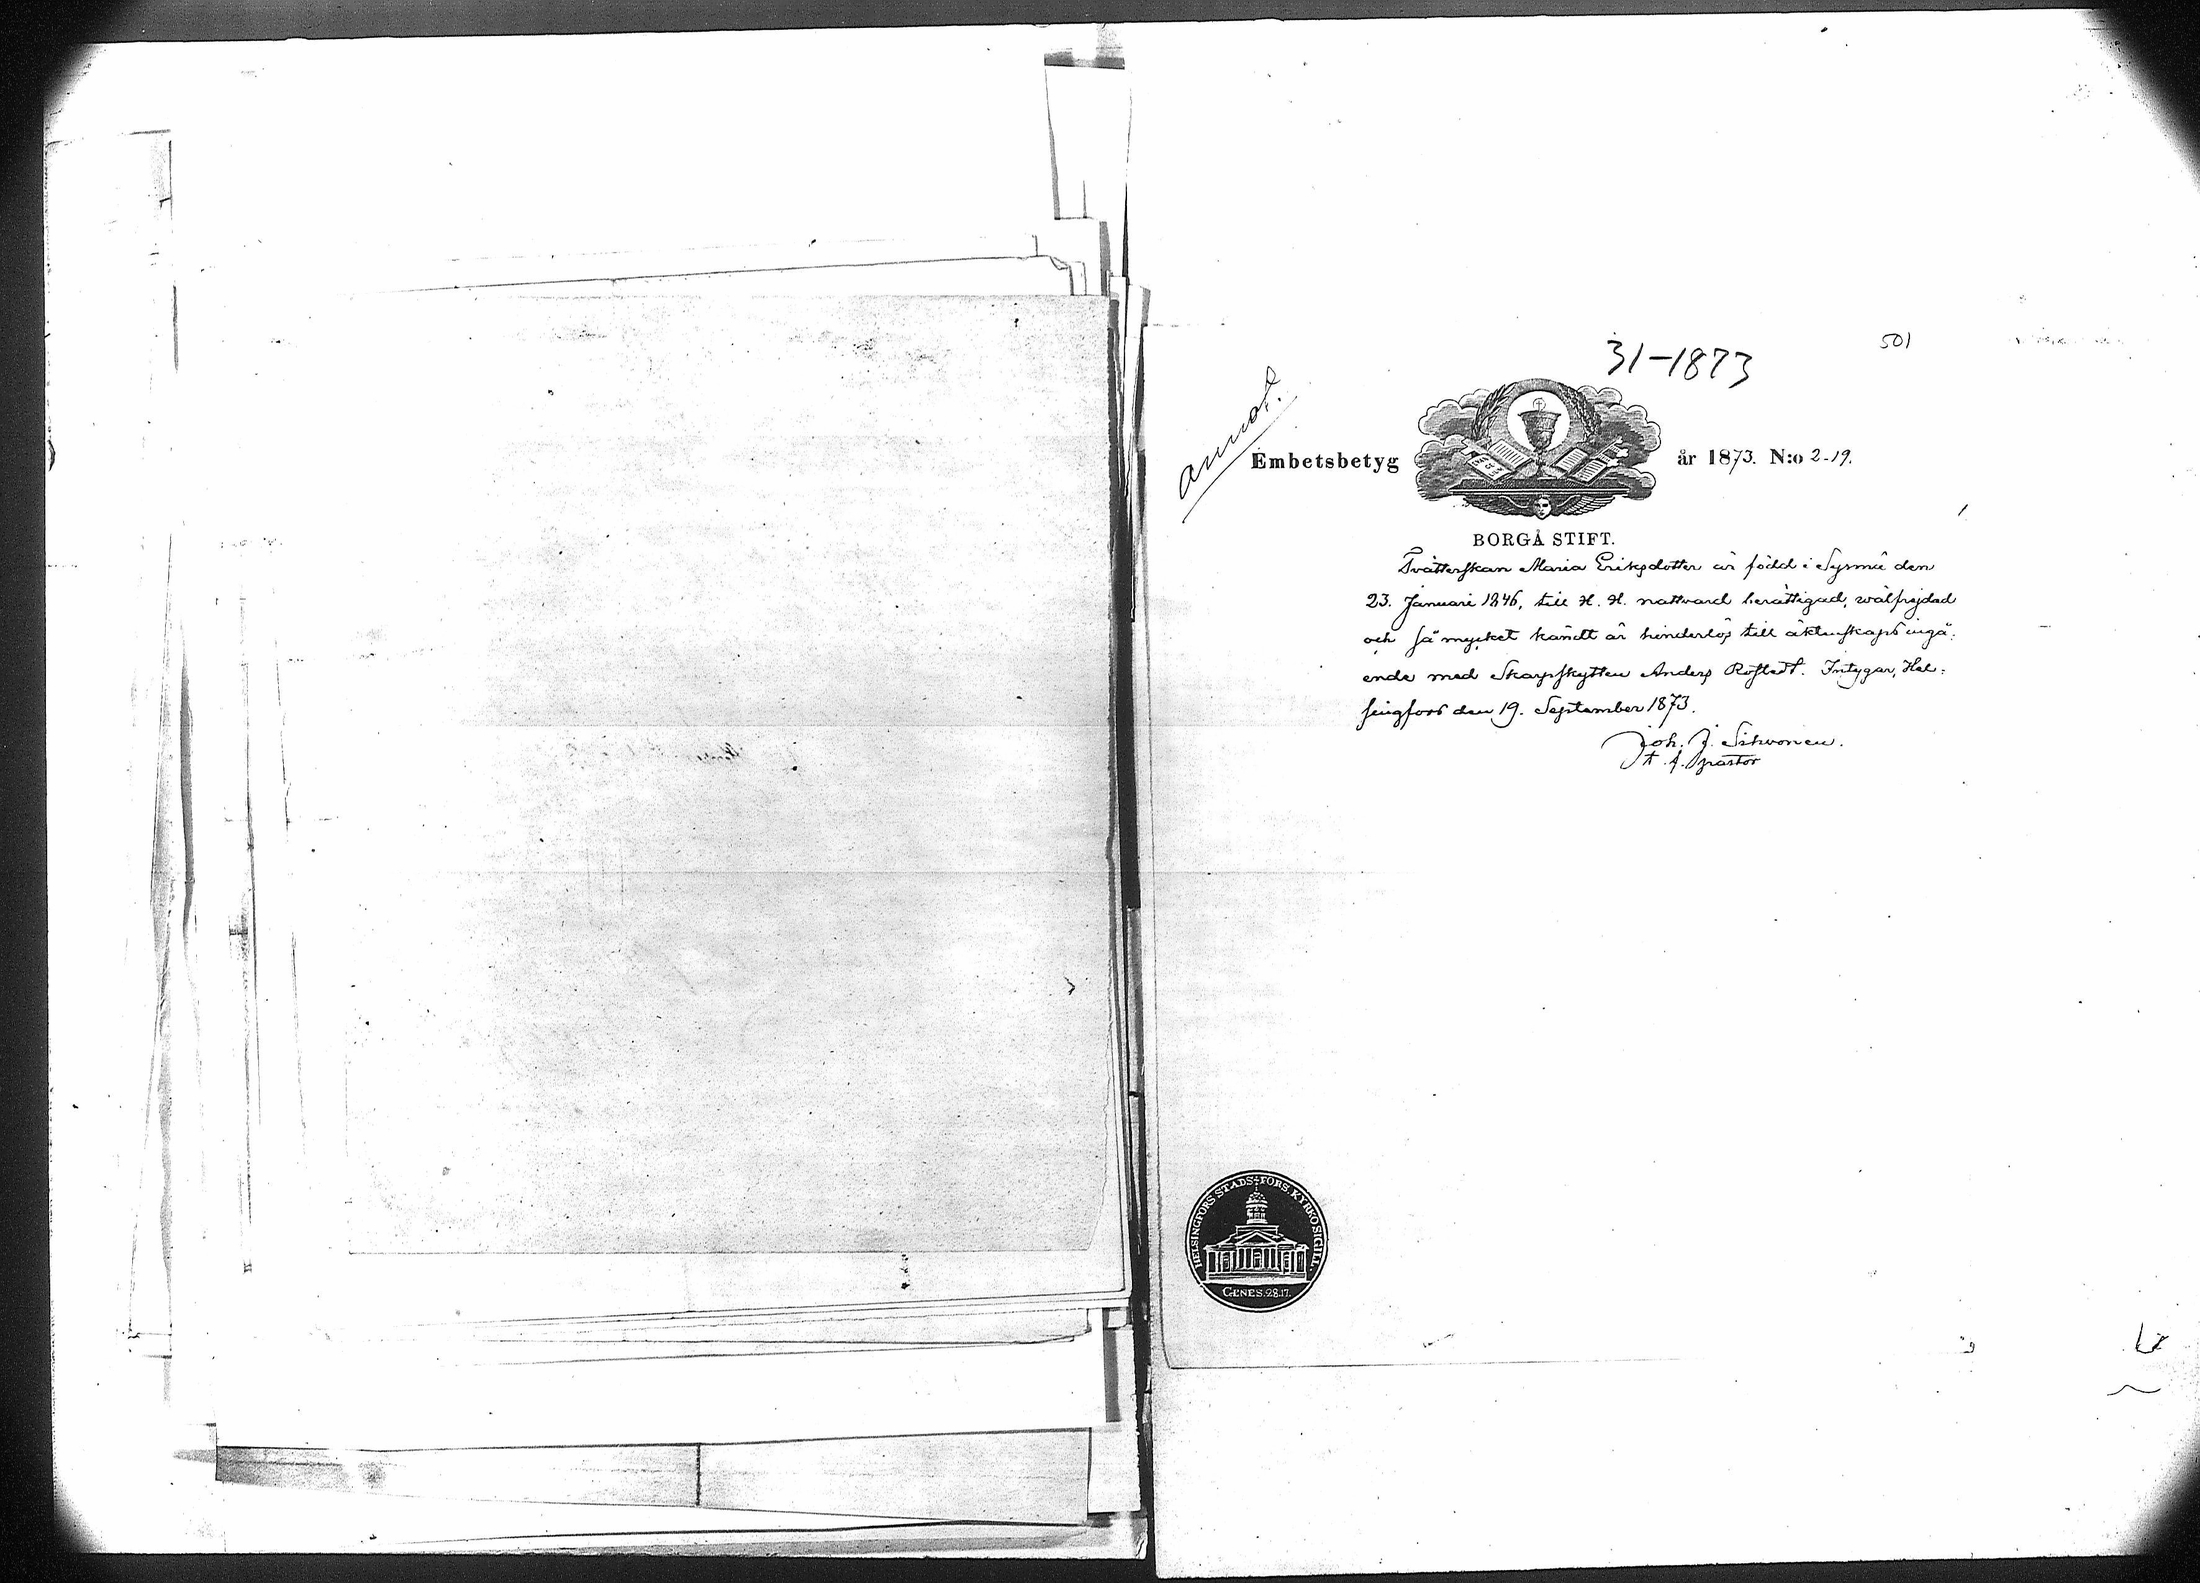 31-1873
501
annot.
Embetsbetyg
år 1873. N:o 2-19.
BORGÅ STIFT.
Tvätterskan Maria Eriksdotter är född i Sysmä den
23. Januari 1846, till H. H. nattvard berättigad, wälfrejdad
och så mycket kändt är hinderlös till äktenskaps ingå:
ende med Skarpskytten Anders Rostedt. Intygar, Hel:
singfors den 19. September 1873.
Joh. J. Sihvonen.
t. f. pastor
HELSINGFORS STADS FÖRS. KYRKOSIGILL.
GENES. 28.17.